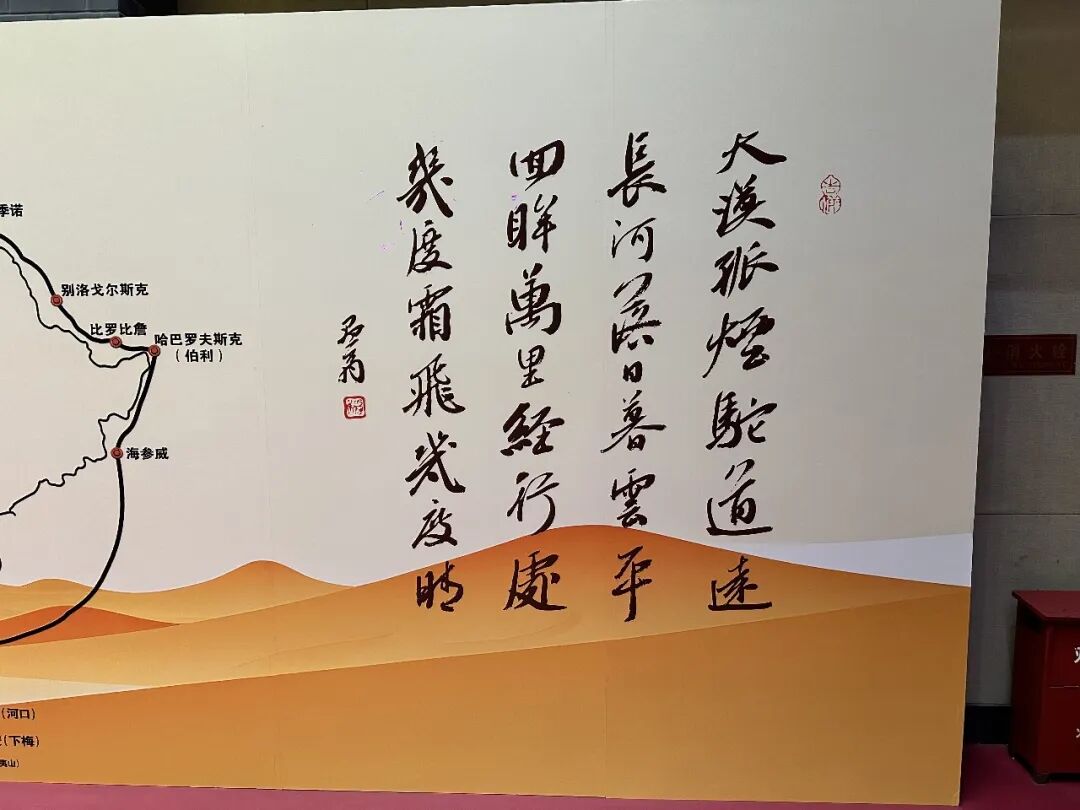 大漠孤煙駝道遠
長河落日暮雲平
回眸萬里経行處
幾度霜飛幾度晴
季诺
别洛戈尔斯克
比罗比詹
哈巴罗夫斯克
（伯利）
海参威
（河口）
（下梅）
夷山）
消火栓